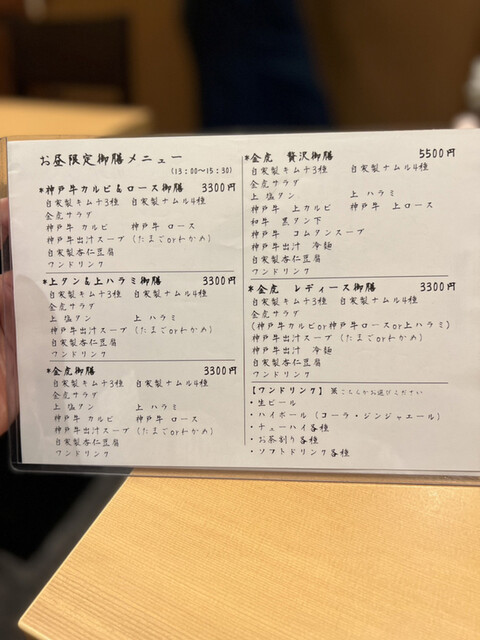 お昼限定御膳メニュー
(13:00〜15:30)
*神戸牛カルビ&ロース御膳 3300円
自家製キムチ3種 自家製ナムル4種
金虎サラダ
神戸牛 カルビ 神戸牛 ロース
神戸牛出汁スープ(たまごorわかめ)
自家製杏仁豆腐
ワンドリンク
*上タン&上ハラミ御膳 3300円
自家製キムチ3種 自家製ナムル4種
金虎サラダ
上 塩タン 上 ハラミ
神戸牛出汁スープ(たまごorわかめ)
自家製杏仁豆腐
ワンドリンク
*金虎御膳 3300円
自家製キムチ3種 自家製ナムル4種
金虎サラダ
上 塩タン 上 ハラミ
神戸牛 カルビ 神戸牛 ロース
神戸牛出汁スープ(たまごorわかめ)
自家製杏仁豆腐
ワンドリンク
*金虎 贅沢御膳 5500円
自家製キムチ3種 自家製ナムル4種
金虎サラダ
上 塩タン 上 ハラミ
神戸牛 上カルビ 神戸牛 上ロース
和牛 黒タン下
神戸牛 コムタンスープ
神戸牛出汁 冷麺
自家製杏仁豆腐
ワンドリンク
*金虎 レディース御膳 3300円
自家製キムチ3種 自家製ナムル4種
金虎サラダ
(神戸牛カルビor神戸牛ロースor上ハラミ)
神戸牛出汁スープ(たまごorわかめ)
神戸牛出汁 冷麺
自家製杏仁豆腐
ワンドリンク
【ワンドリンク】 こちらからお選びください
・生ビール
・ハイボール(コーラ・ジンジャエール)
・チューハイ各種
・お茶割り各種
・ソフトドリンク各種